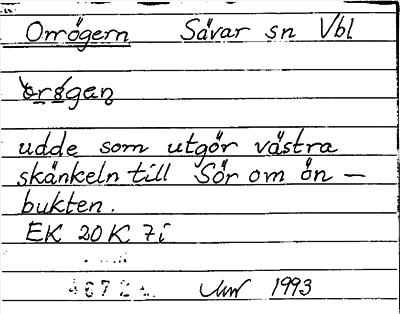 Orrögern Sävar sn Vbl
òrǿgan̥
udde som utgör västra
skänkeln till Sör om ön -
bukten.
EK 20K 7i
1993